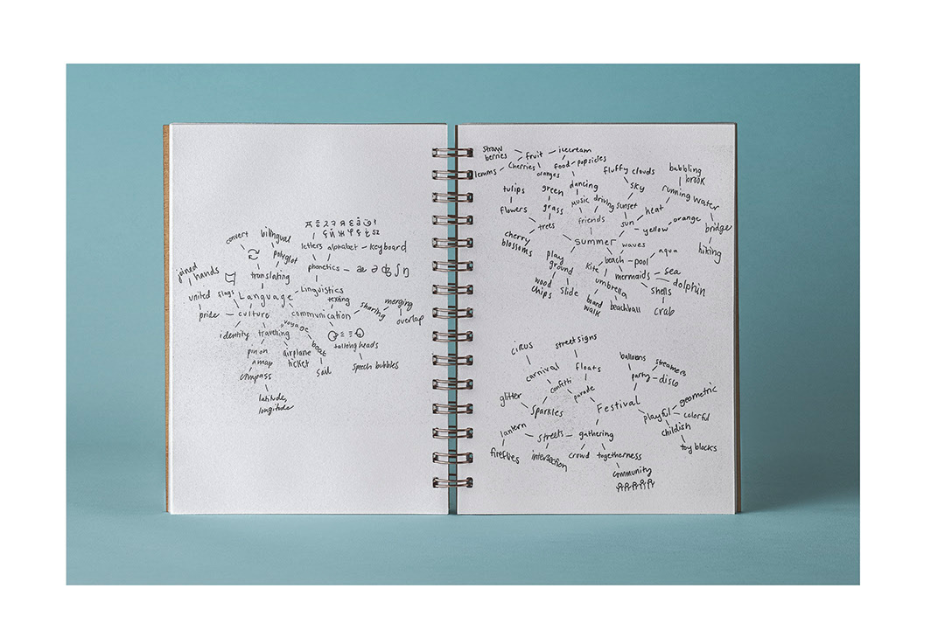 convert
bilingual
polyglot
translating
letters alphabet - keyboard
phonetics - æ ə ʤ ʃ ŋ
joined
hands
united
slogs
Language
Linguistics
texting
pride - culture
communication
sharing
merging
overlap
identity
travelling
voyage
boat
sail
talking heads
speech bubbles
pin on
a map
airplane
ticket
compass
latitude,
longitude
straw
berries
fruit
icecream
lemons
cherries
oranges
food - popsicles
fluffy clouds
babbling
brook
tulips
green
dancing
sky
running water
flowers
grass
music
driving
sunset
heat
trees
friends
sun
yellow
orange
bridge
hiking
cherry
blossoms
summer
waves
aqua
play
ground
kite
beach - pool
mermaids
sea
dolphin
wood
chips
slide
umbrella
shells
crab
board
walk
beachball
cirus
street signs
carnival
confetti
floats
parade
balloons
streamers
party - disco
glitter
sparkles
Festival
playful
geometric
colorful
childish
toy blocks
lantern
streets - gathering
fireflies
intersection
crowd
togetherness
community